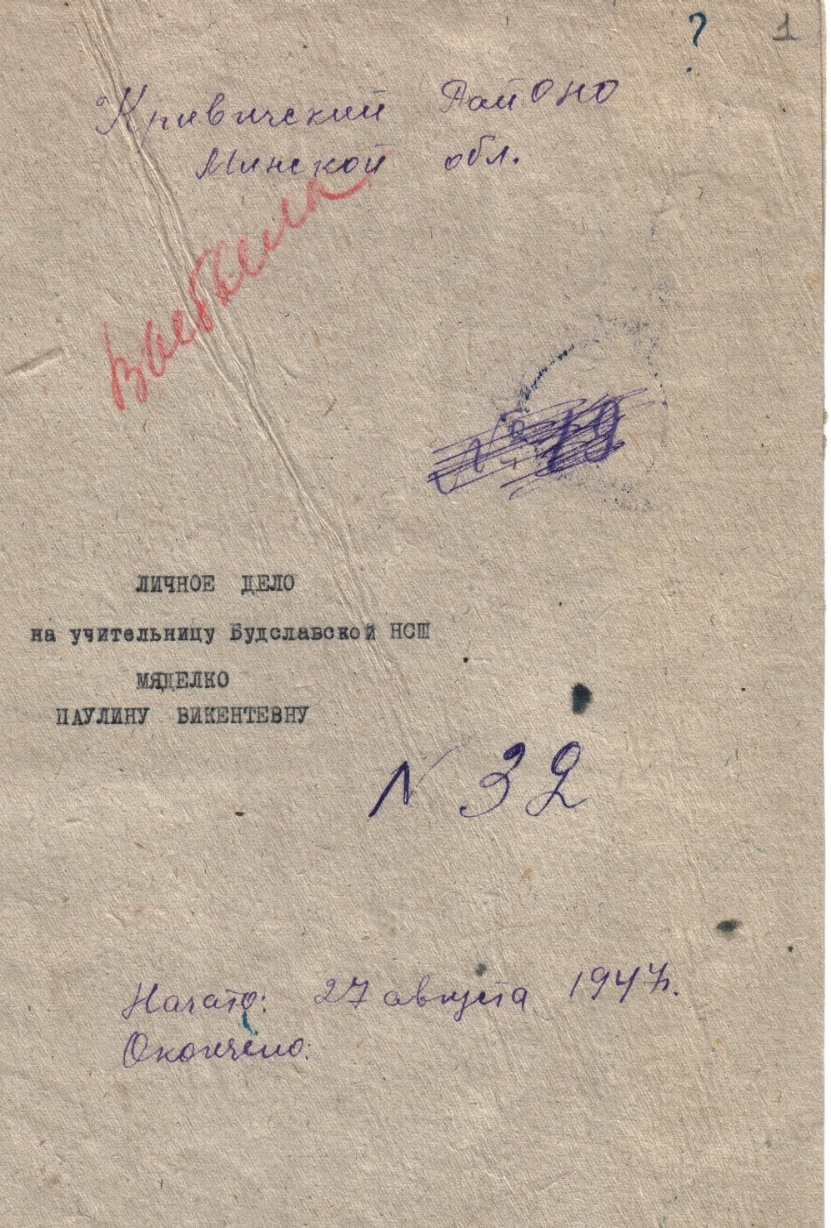 ? 1
Кривичский РайОНО
Минской обл.
Выбыла
№ 19
ЛИЧНОЕ ДЕЛО
на учительницу Будславской НСШ
МЯДЕЛКО
ПАУЛИНУ ВИКЕНТЕВНУ
N 32
Начато: 27 августа 1947г.
Окончено: